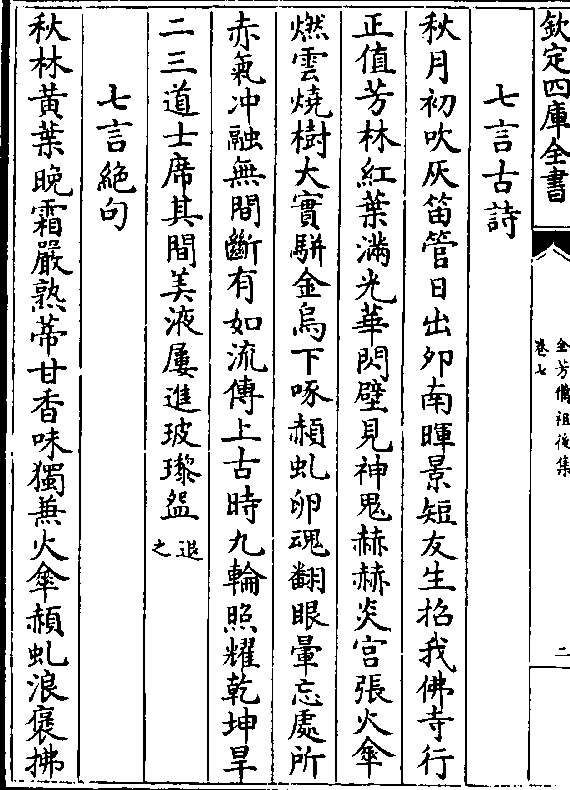 欽定四庫全書
全芳備祖後集
卷七
二
七言古詩
秋月初吹灰笛管日出卯南暉景短友生招我佛寺行
正值芳林紅葉滿光華閃壁見神鬼赫赫炎宮張火傘
燃雲燒樹大實駢金烏下啄赬虬卵魂翻眼暈忘處所
赤氣沖融無間斷有如流傳上古時九輪照耀乾坤旱
二三道士席其間美液屢進玻瓈盌退之
七言絕句
秋林黃葉晚霜嚴熟蒂甘香味獨兼火傘赬虬浪褒拂